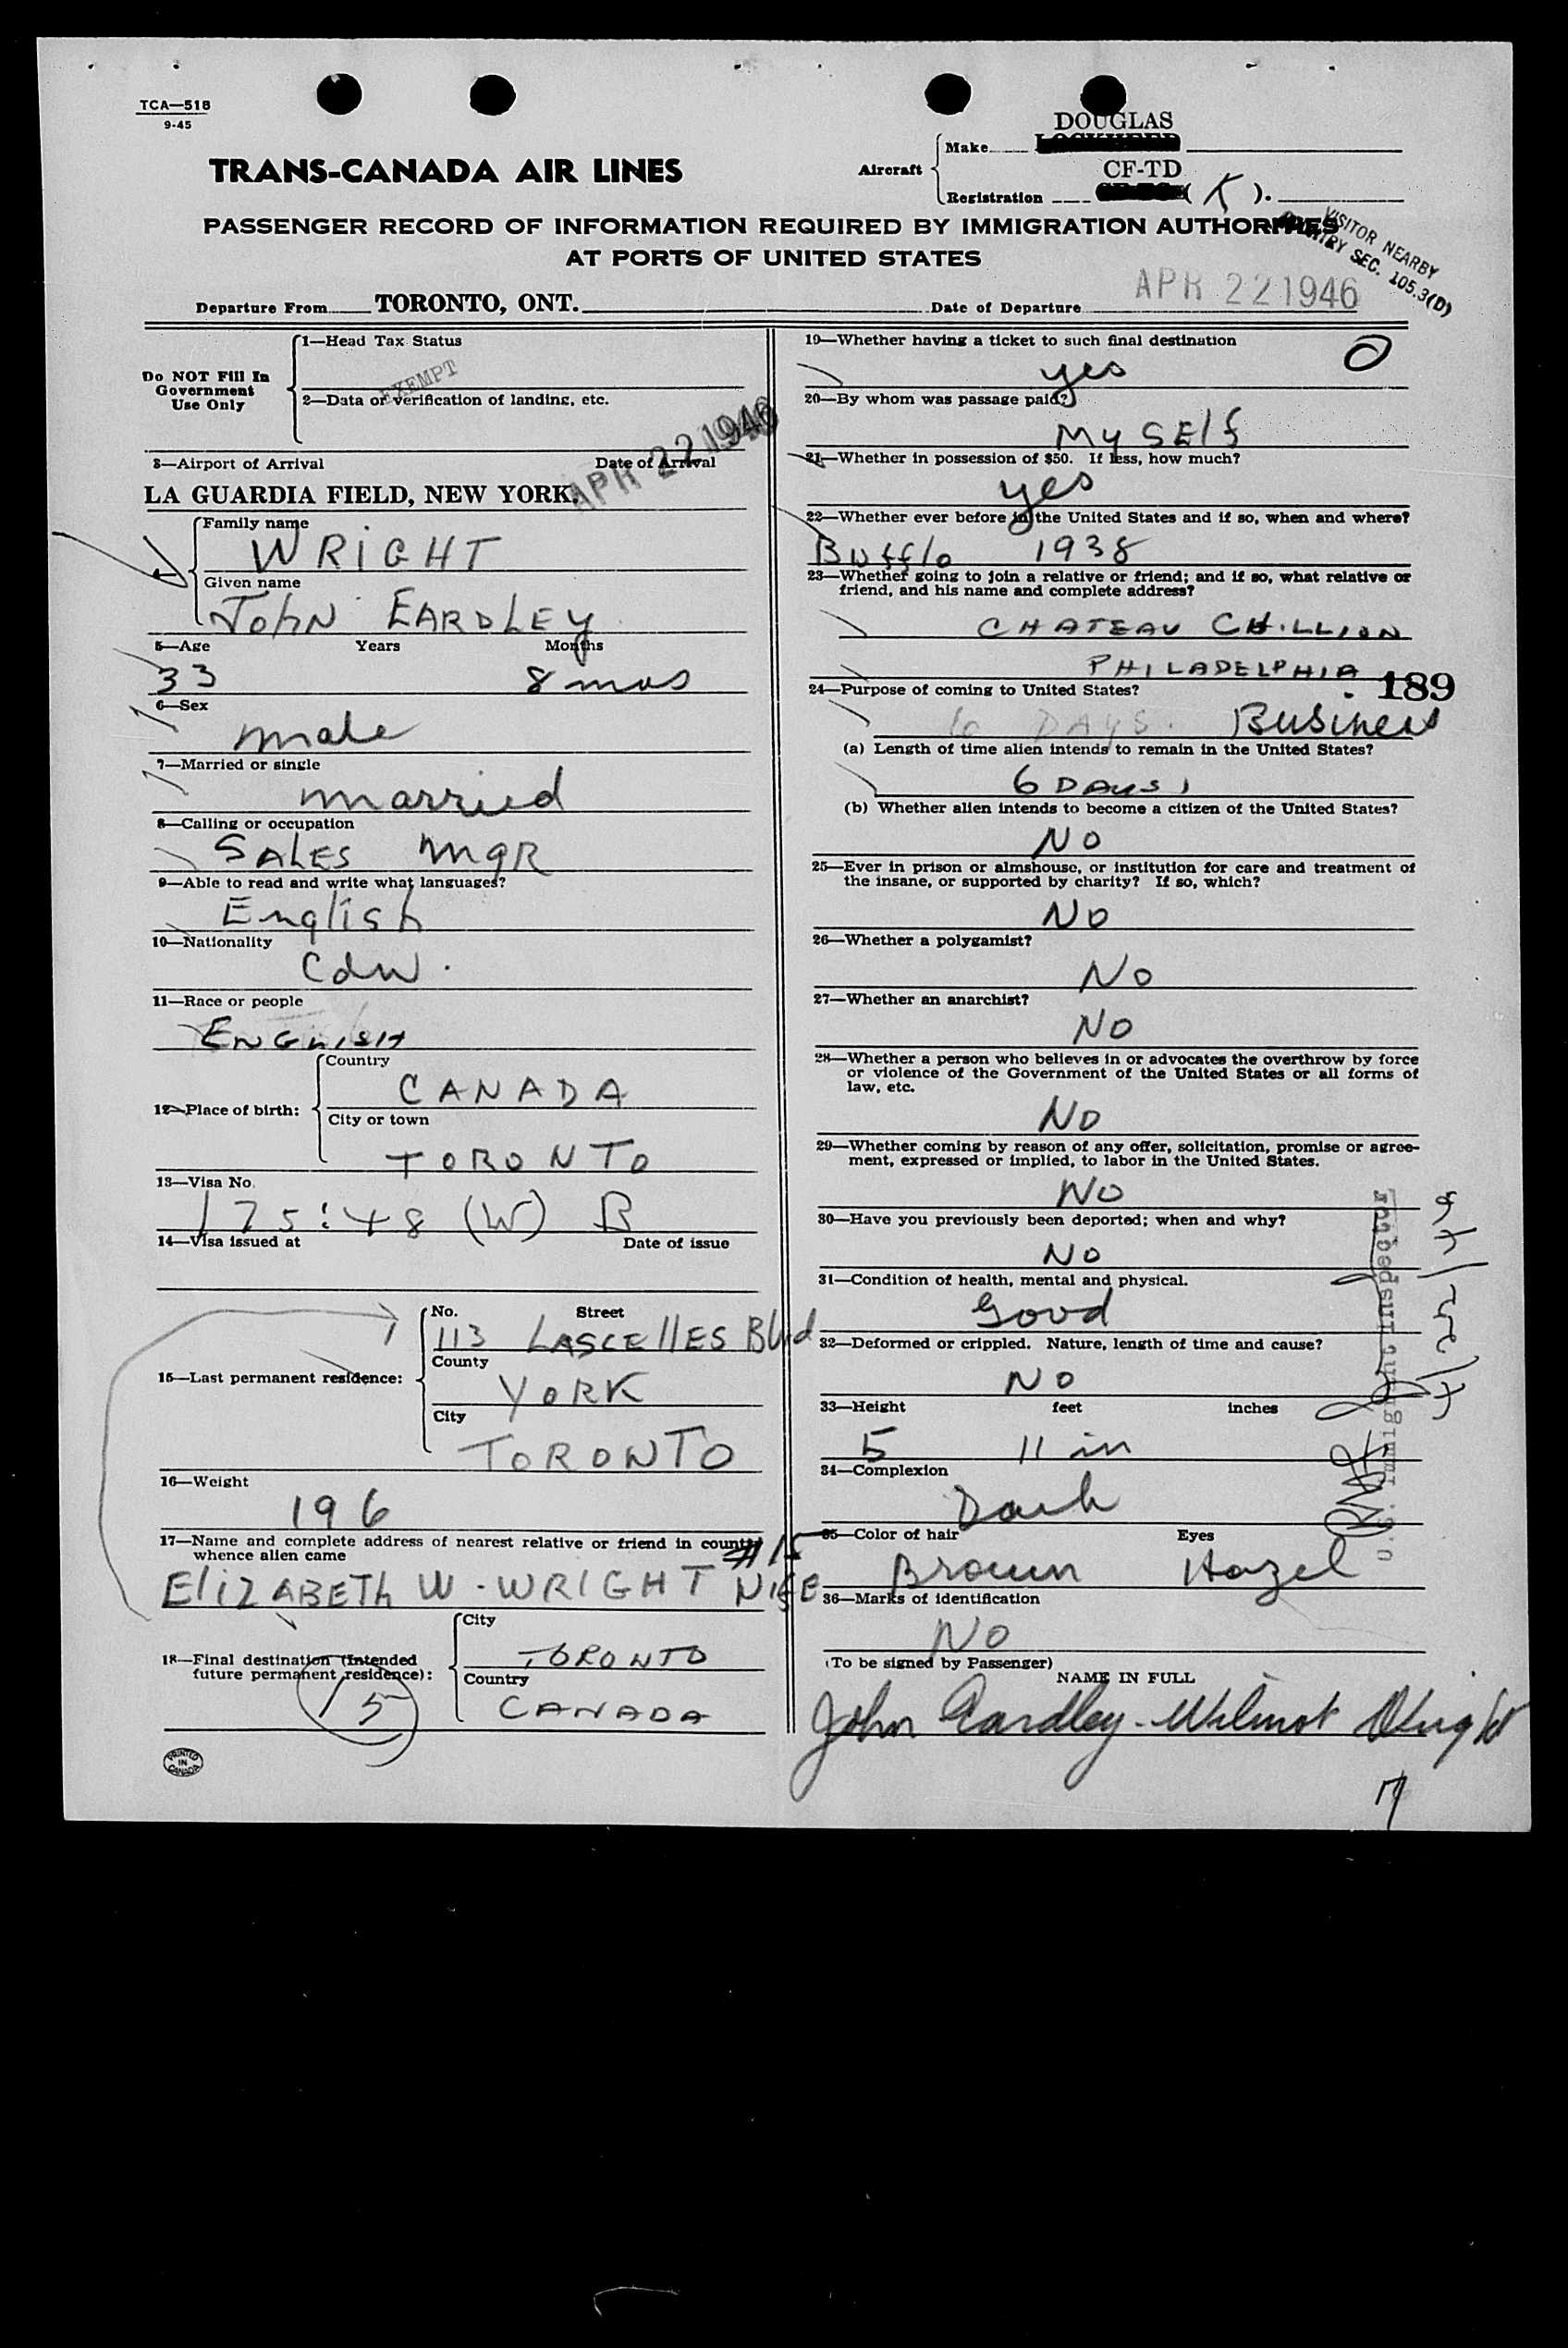 TCA—518
9-45
TRANS-CANADA AIR LINES
Aircraft
Make
DOUGLAS
Registration
CF-TD
(K).
PASSENGER RECORD OF INFORMATION REQUIRED BY IMMIGRATION AUTHORITIES
AT PORTS OF UNITED STATES
VISITOR NEARBY
COUNTRY SEC. 105.3(D)
Departure From TORONTO, ONT.
Date of Departure APR 22 1946
Do NOT Fill In
Government
Use Only
1—Head Tax Status
EXEMPT
2—Data or verification of landing, etc.
3—Airport of Arrival Date of Arrival
APR 22 1946
LA GUARDIA FIELD, NEW YORK.
Family name
WRIGHT
Given name
JOhN EARDLEY
5—Age Years Months
33 8 mos
6—Sex
male
7—Married or single
married
8—Calling or occupation
SALES mgR
9—Able to read and write what languages?
English
10—Nationality
Cdn.
11—Race or people
ENGLISH
12—Place of birth:
Country
CANADA
City or town
TORONTO
13—Visa No.
175:48 (W) B
14—Visa issued at Date of issue
15—Last permanent residence:
No. Street
113 LASCEllES Blvd
County
YORK
City
TORONTO
16—Weight
196
17—Name and complete address of nearest relative or friend in country
whence alien came
#15
EliZABETh W. WRIGHT
18—Final destination (Intended
future permanent residence):
City
TORONTO
Country
CANADA
15
PRINTED
IN
CANADA
19—Whether having a ticket to such final destination
yes
0
20—By whom was passage paid?
MySElf
21—Whether in possession of $50. If less, how much?
yes
22—Whether ever before in the United States and if so, when and where?
Bufflo 1938
23—Whether going to join a relative or friend; and if so, what relative or
friend, and his name and complete address?
CHATEAU CHILLION
PHILADELPHIA
189
24—Purpose of coming to United States?
DAYS. Business
(a) Length of time alien intends to remain in the United States?
6 DAys
(b) Whether alien intends to become a citizen of the United States?
NO
25—Ever in prison or almshouse, or institution for care and treatment of
the insane, or supported by charity? If so, which?
NO
26—Whether a polygamist?
No
27—Whether an anarchist?
NO
28—Whether a person who believes in or advocates the overthrow by force
or violence of the Government of the United States or all forms of
law, etc.
NO
29—Whether coming by reason of any offer, solicitation, promise or agree-
ment, expressed or implied, to labor in the United States.
NO
30—Have you previously been deported; when and why?
NO
31—Condition of health, mental and physical.
Good
32—Deformed or crippled. Nature, length of time and cause?
NO
33—Height feet inches
5 11 in
34—Complexion
Dark
35—Color of hair Eyes
Brown Hazel
36—Marks of identification
NO
(To be signed by Passenger)
NAME IN FULL
John Eardley-Wilmot Wright